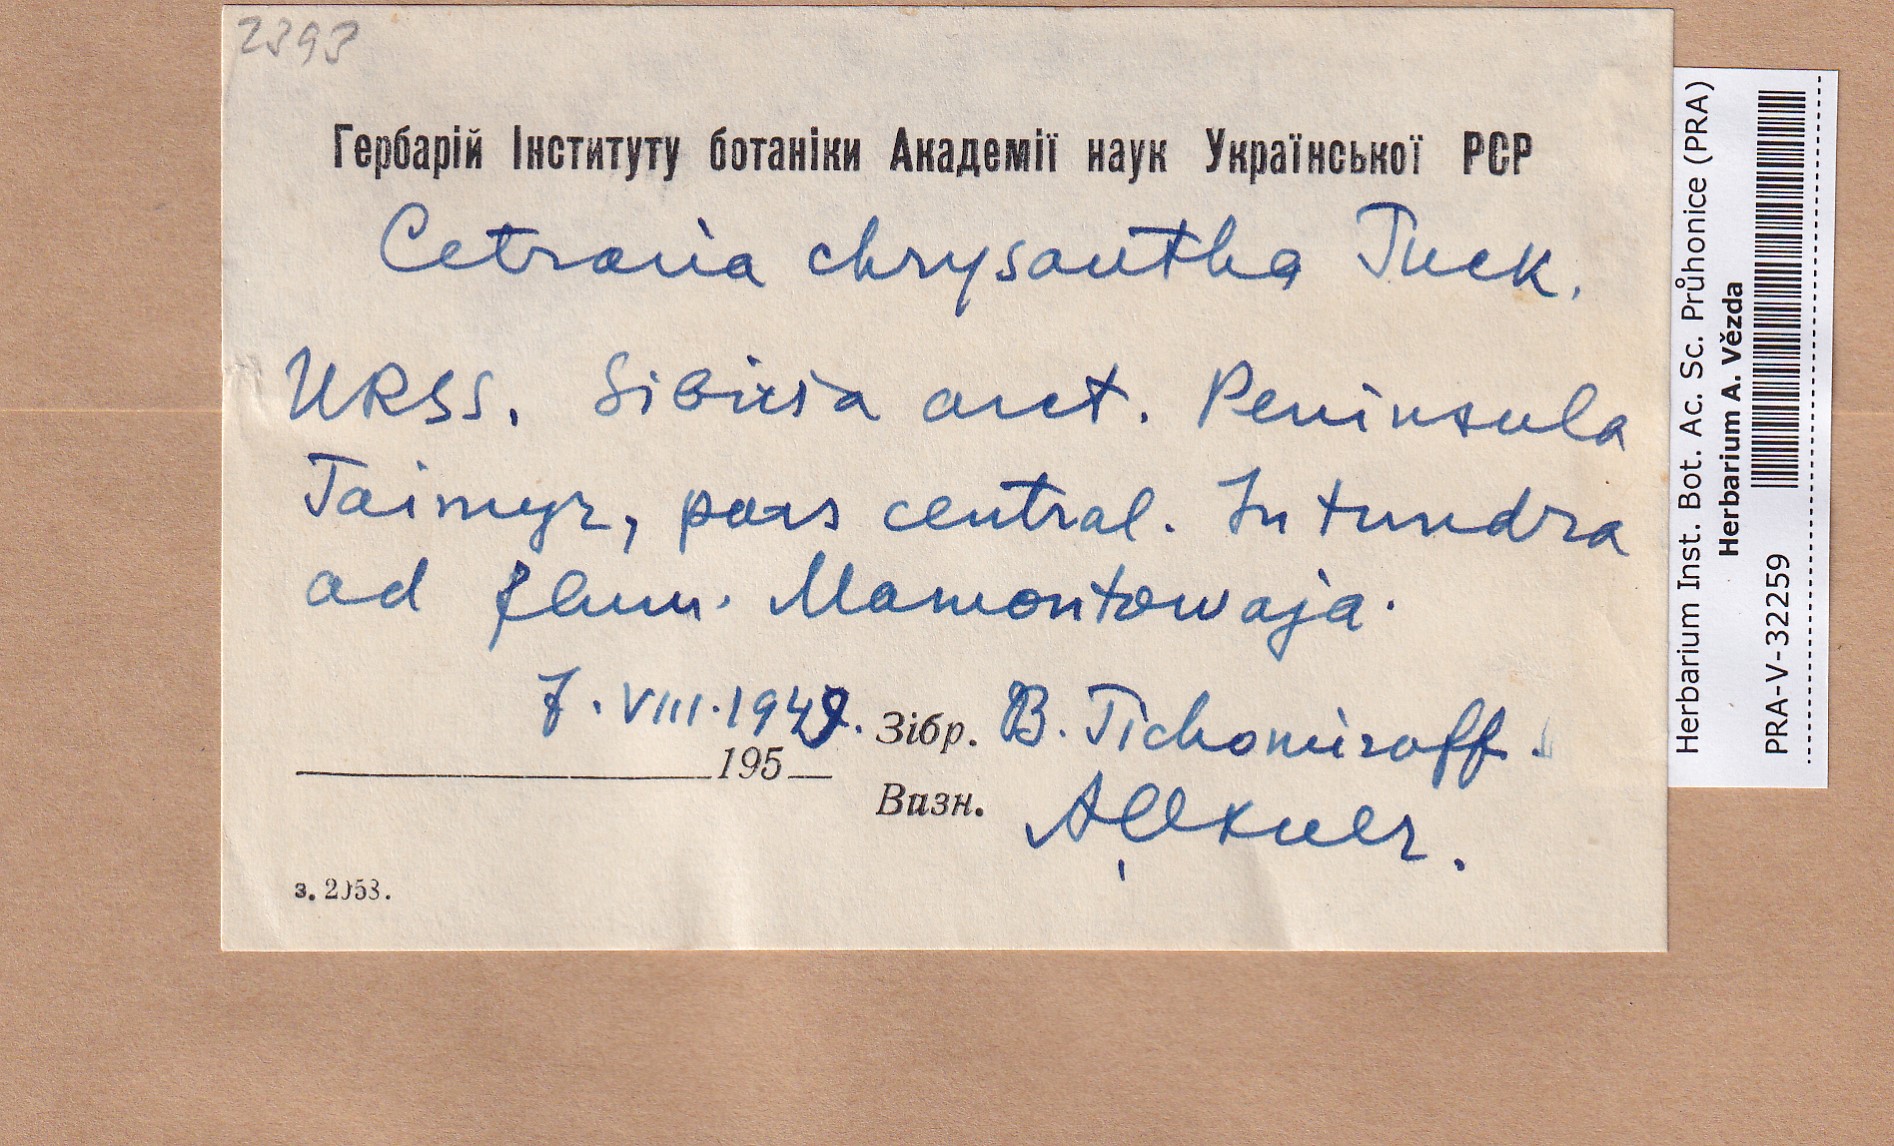 2393
Гербарій Інституту ботаніки Академії наук Української РСР
Cetraria chrysantha Tuck.
URSS. Sibiria arct. Peninsula
Taimyr, pars central. In tundra
ad flum. Mamontowaja.
7.VIII.1949. Зібр. B. Tichomiroff.
195
Визн. AOxner.
з. 2053.
Herbarium Inst. Bot. Ac. Sc. Průhonice (PRA)
Herbarium A. Vězda
PRA-V-32259